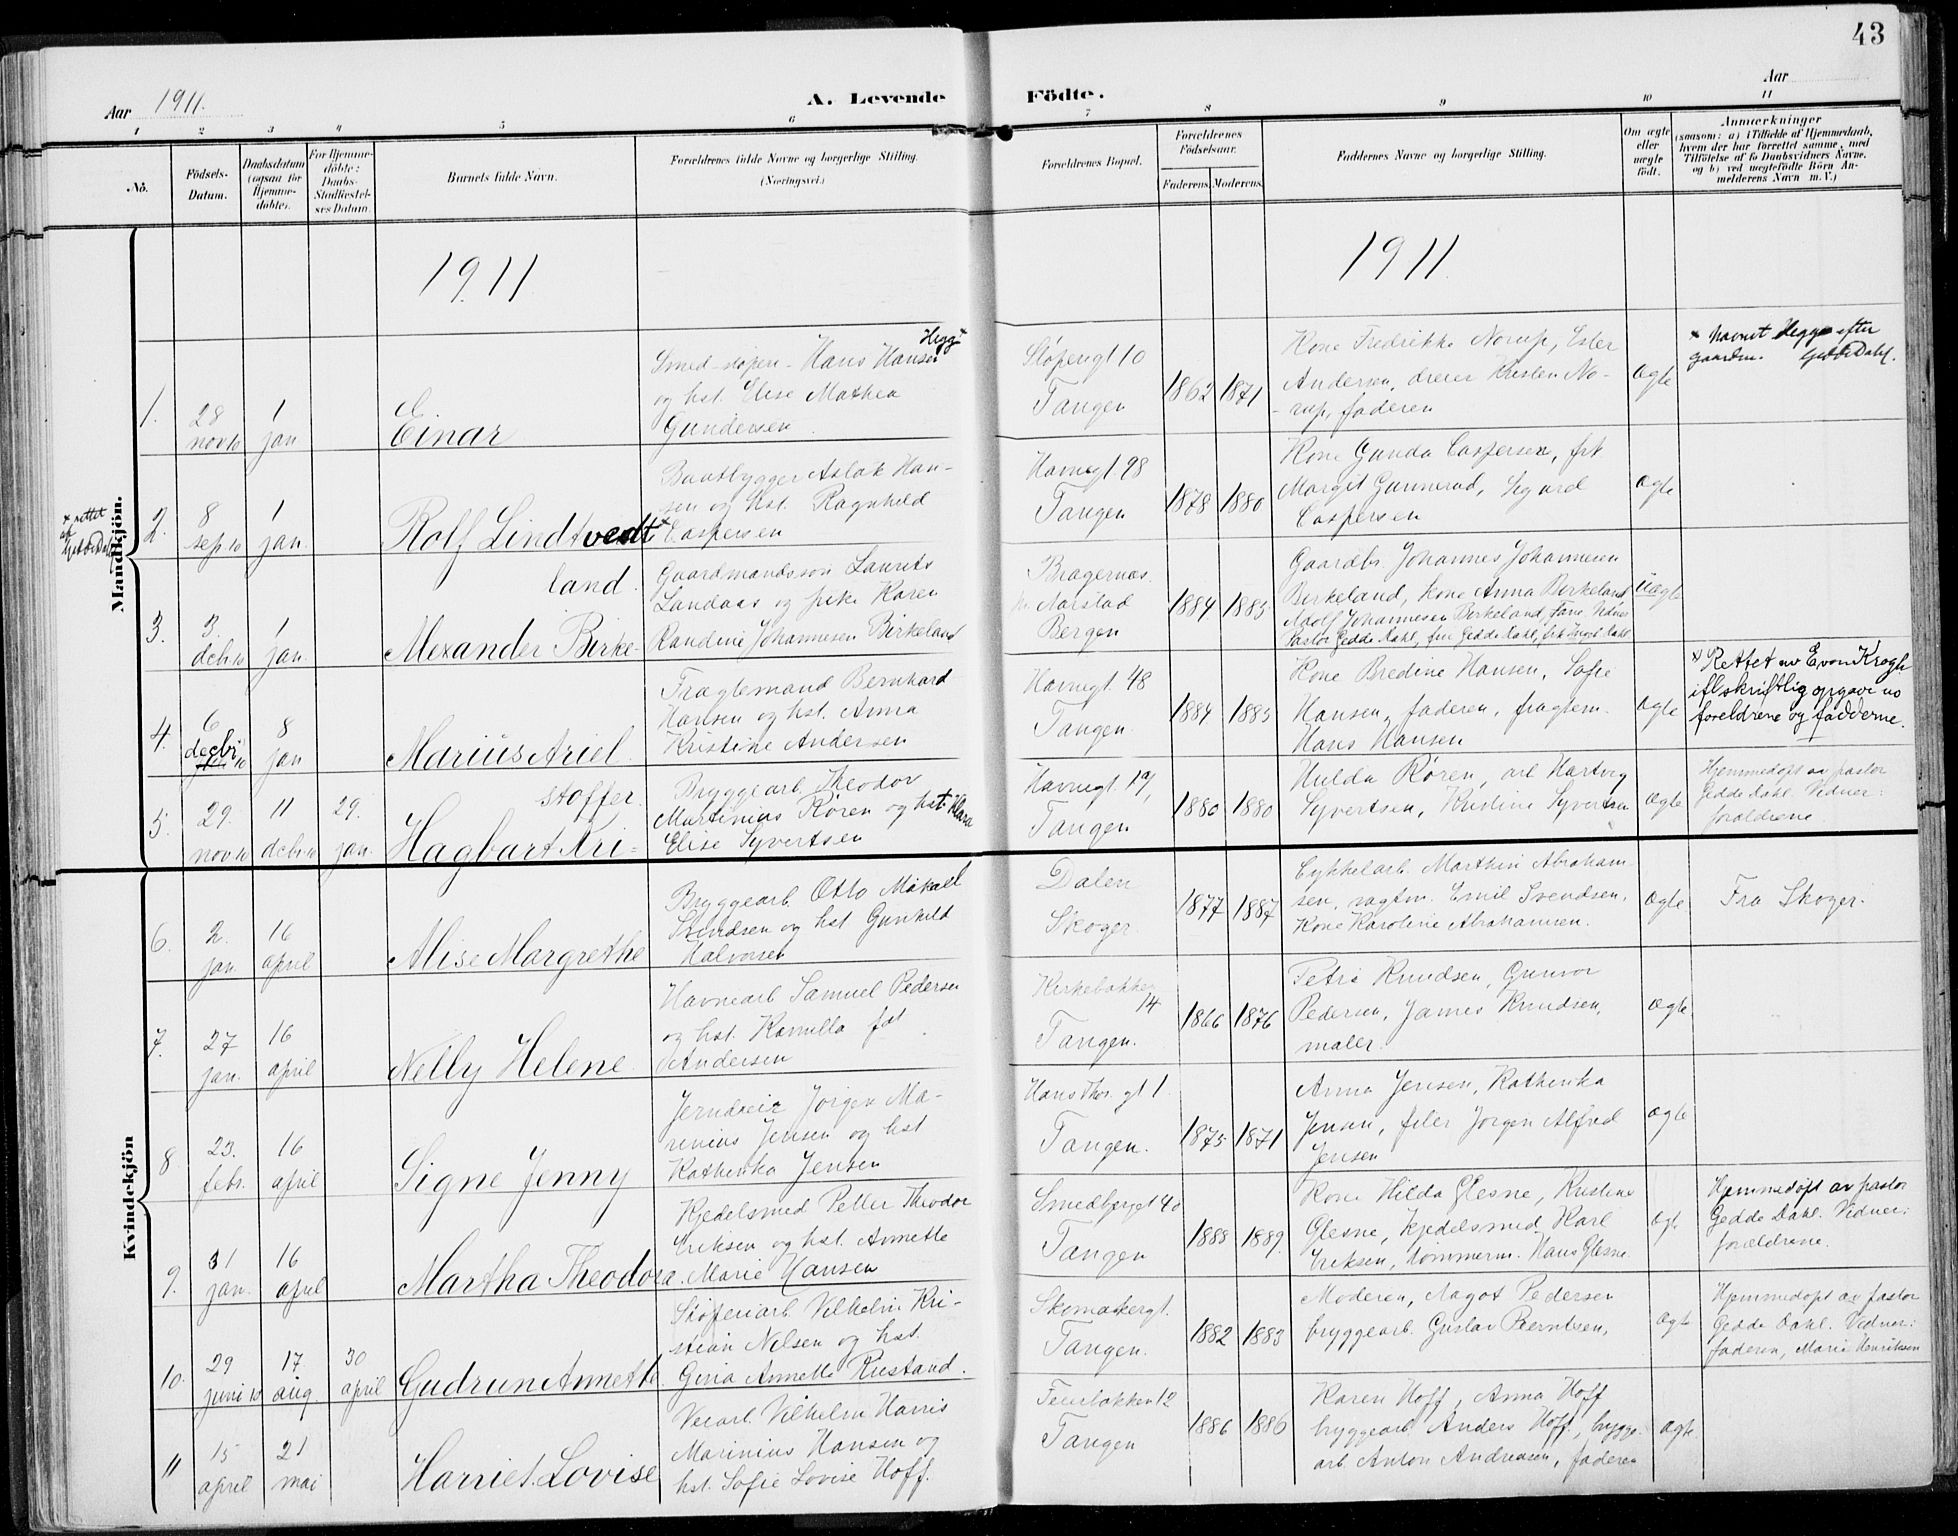 43
Aar 1911.
A. Levende Födte.
Aar
1 2 3 4 5 6 7 8 9 10 11
Nö.
Födsels-
Datum.
Daabsdatum
(ogsaa for
Hjemme-
döbte).
For Hjemme-
döbte:
Daabs-
Stadfæstel-
ses Datum.
Barnets fulde Navn.
Forældrenes fulde Navne og borgerlige Stilling.
(Næringsvei.)
Forældrenes Bopæl.
Forældrenes
Födselsaar.
Faderens. Moderens.
Faddernes Navne og borgerlige Stilling.
Om ægte
eller
uægte
födt.
Anmærkninger
(saasom: a) i Tilfælde af Hjemmedaab,
hvem der har forrettet samme, med
Tilföielse af to Daabsvidners Navne,
og b) ved uægtefödte Börn An-
melderens Navn m. V.)
1911
1911
Mandkjön.
1. 28 nov 10
1 jan
Einar
Hans Hansen Hegg x
og hst. Elise Mathea
Gundersen.
Støperigt 10
Tangen
1862 1871
Kone Fredrikke Norup, Ester
Andersen, dreier Kristen No-
rup, faderen
ægte
x navnet Hegg efter
gaarden. Gedde Dahl.
x rettet
af
Gedde Dahl
2. 8 sep 10
1 jan.
Rolf Lindtvedt x
Baatbygger Aslak Han-
sen og hst. Ragnhild
Caspersen
Havnegt. 98
Tangen
1878 1880
Kone Gunda Caspersen, frk
Margit Gunnerud, Sigurd
Caspersen
ægte
3. 3. decbr 10
1 jan.
Alexander Birke-
land.
Gaardmandssøn Laurits
Landaas og pike Karen
Randine Johannesen Birkeland
Bragernæs.
Aarstad
Bergen
1884 1885
Gaardbr. Johannes Johannesen
Birkeland, Kone Anna Birkeland
Adolf Johannesen Birkeland,
Pastor Gedde Dahl, fru Gedde Dahl, frk Dahl
uægte
4. 6 decbr 10
8 jan
Marius Ariel.
Fragtemand Bernhard
Hansen og hst. Anna
Kristine Andersen
Havnegt. 48
Tangen.
1884 1885
Kone Bredine Hansen, Sofie
Hansen, faderen, fragtem.
Hans Hansen
ægte
x Rettet av E von Krogh
ifl skriftlig opgave av
foreldrene og fadderne.
5. 29. nov 10
11 decbr 10
29. jan.
Hagbart Kri-
stoffer.
Bryggearb. Theodor
Martinius Røren og hst. Klara
Elise Syvertsen
Havnegt 19
Tangen
1880 1880
Hulda Røren, arb Hartvig
Syvertsen, Kristine Syvertsen
ægte
Hjemmedøpt av pastor
Gedde Dahl. Vidner:
forældrene
Kvindekjön
6. 2. jan.
16 april
Alise Margrethe
Bryggearb. Otto Mikael
Svendsen og hst Gunhild
Halvorsen
Dalen
Skoger
1877 1887
Cykkelarb. Marthin Abraham
sen, Emil Svendsen,
Kone Karoline Abrahamsen.
ægte
Fra Skoger.
7. 27 jan.
16 april
Nelly Helene.
Havnearb Samuel Pedersen
og hst. Kamilla føt
Andersen
Kirkebakken
14
Tangen.
1866 1876
Petra Knudsen, Gunvor
Pedersen, James Knudsen,
maler.
ægte.
8 23. febr.
16 april
Signe Jenny
Jerndreier Jørgen Ma-
rinius Jensen og hst
Kathinka Jensen
Hans Thor. gt 1.
Tangen.
1875 1871
Anna Jensen, Kathinka
Jensen, filer Jørgen Alfred
Jensen
ægte
9. 31 jan.
16 april
Martha Theodora.
Kjedelsmed Petter Theodor
Eriksen og hst. Annette
Marie Hansen
Smedbjerget 40
Tangen
1888 1889.
Kone Hilda Glesne, Kristine
Glesne, kjedelsmed Karl
Eriksen, tømmerm. Hans Glesne.
ægte
Hjemmedøpt av pastor
Gedde Dahl. Vidner:
forældrene.
10. 29 juni 10
17. aug.
30 april
Gudrun Annette
Støperiarb Vilhelm Kri-
stian Nilsen og hst.
Gina Annette Rustand.
Skomakergt.
Tangen.
1882 1883
Moderen, Aagot Pedersen
bryggearb. Gustav Berntsen,
ægte
Hjemmedøpt av pastor
Gedde Dahl. Vidner:
faderen, Marie Henriksen
11 15 april
21 mai
Harriet Lovise
Veiarb. Vilhelm Harris
Marinius Hansen og
hst. Sofie Lovise Hoff.
Feierbakken 12
Tangen
1886 1886
Karen Hoff, Anna Hoff
bryggearb. Anders Hoff, brygge-
arb. Anton Andreasen, faderen
ægte.